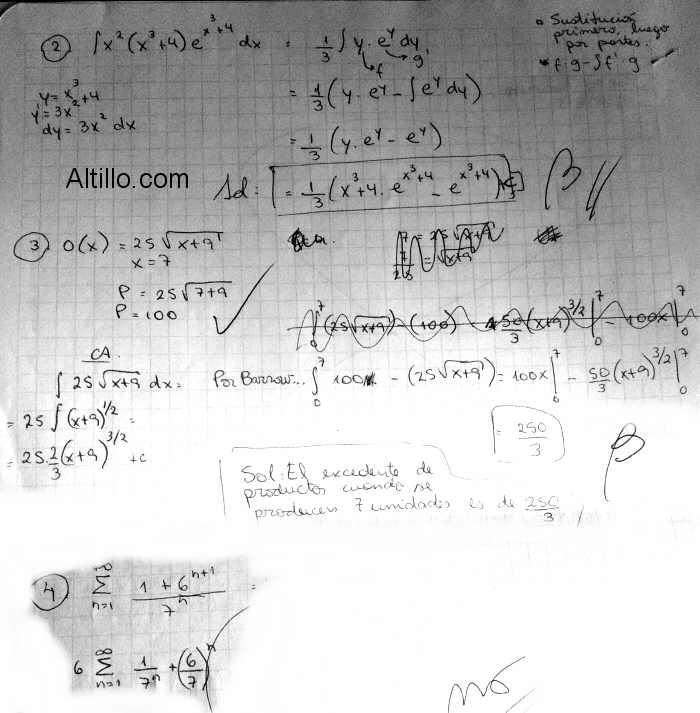 ② ∫x²(x³+4)e^(x³+4) dx = 1/3 ∫ y·e^y dy
f g
o Sustitución
primero, luego
por partes.
* f·g-∫f'·g
y = x³+4
y' = 3x²
dy = 3x² dx
= 1/3 (y·e^y - ∫e^y dy)
= 1/3 (y·e^y - e^y)
Altillo.com
Sol: = 1/3 (x³+4·e^(x³+4) - e^(x³+4))
③ O(x) = 25√(x+9)
x = 7
P = 25√(7+9)
P = 100
7 = 25√(x+9)
7/25 = √(x+9)
∫₀⁷ (25√(x+9)) - (100) 50/3 (x+9)^(3/2) |₀⁷ - 100x |₀⁷
CA.
∫ 25√(x+9) dx = Por Barrow... ∫₀⁷ 100 - (25√(x+9)) = 100x |₀⁷ - 50/3 (x+9)^(3/2) |₀⁷
= 25 ∫ (x+9)^(1/2) =
= 25·2/3 (x+9)^(3/2) + c
= 250/3
Sol: El excedente de
productos cuando se
producen 7 unidades es de 250/3
④ ∑_(n=1)^∞ (1 + 6^(n+1))/7^n =
6 ∑_(n=1)^∞ 1/7^n + (6/7)^n